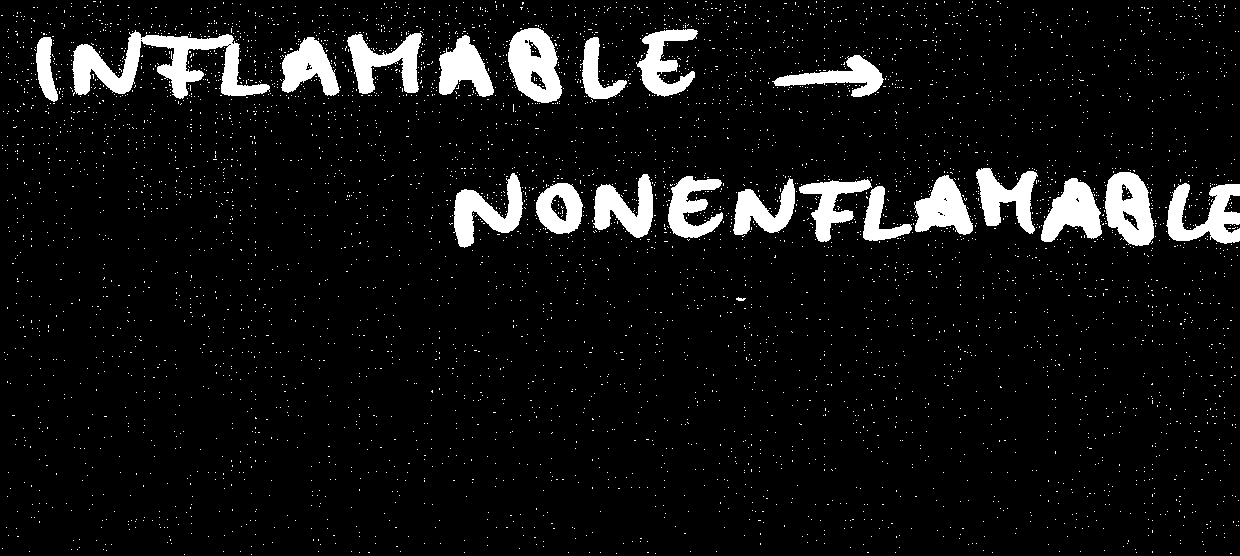 INFLAMABLE →
NONENFLAMABLE